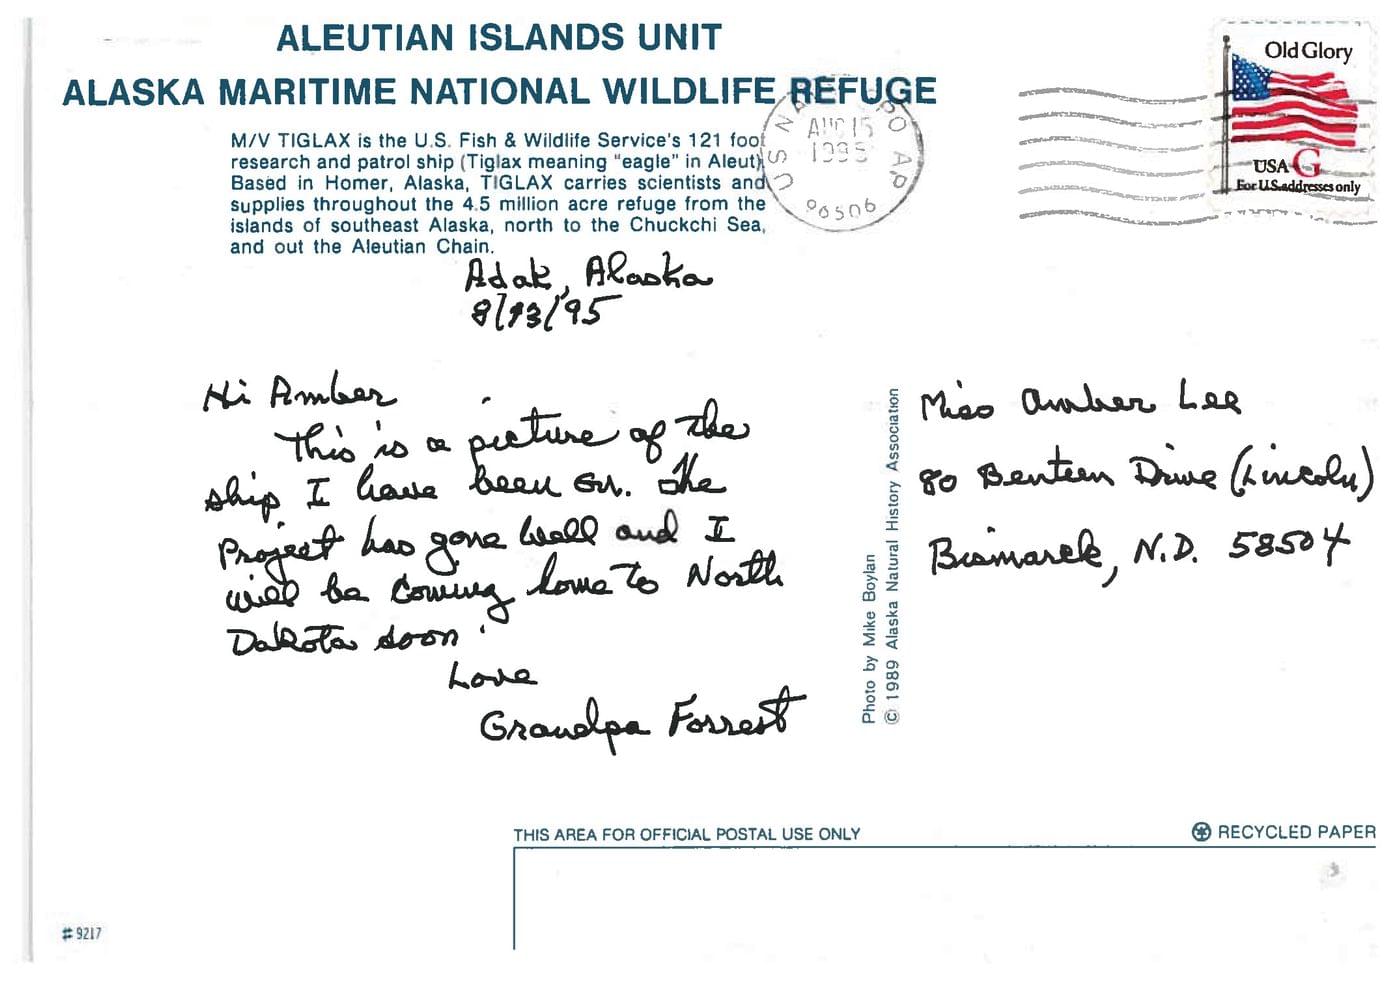 ALEUTIAN ISLANDS UNIT
ALASKA MARITIME NATIONAL WILDLIFE REFUGE
M/V TIGLAX is the U.S. Fish & Wildlife Service's 121 foot
research and patrol ship (Tiglax meaning "eagle" in Aleut).
Based in Homer, Alaska, TIGLAX carries scientists and
supplies throughout the 4.5 million acre refuge from the
islands of southeast Alaska, north to the Chuckchi Sea,
and out the Aleutian Chain.
US NA PO AP
AUG 15
1995
96506
Old Glory
USA G
For U.S. addresses only
Adak, Alaska
8/13/95
Hi Amber
This is a picture of the
ship I have been on. The
Project has gone well and I
will be coming home to North
Dakota soon.
Love
Grandpa Forrest
Photo by Mike Boylan
© 1989 Alaska Natural History Association
Miss Amber Lee
80 Benteen Drive (Lincoln)
Bismarck, N.D. 58504
THIS AREA FOR OFFICIAL POSTAL USE ONLY
RECYCLED PAPER
#9217